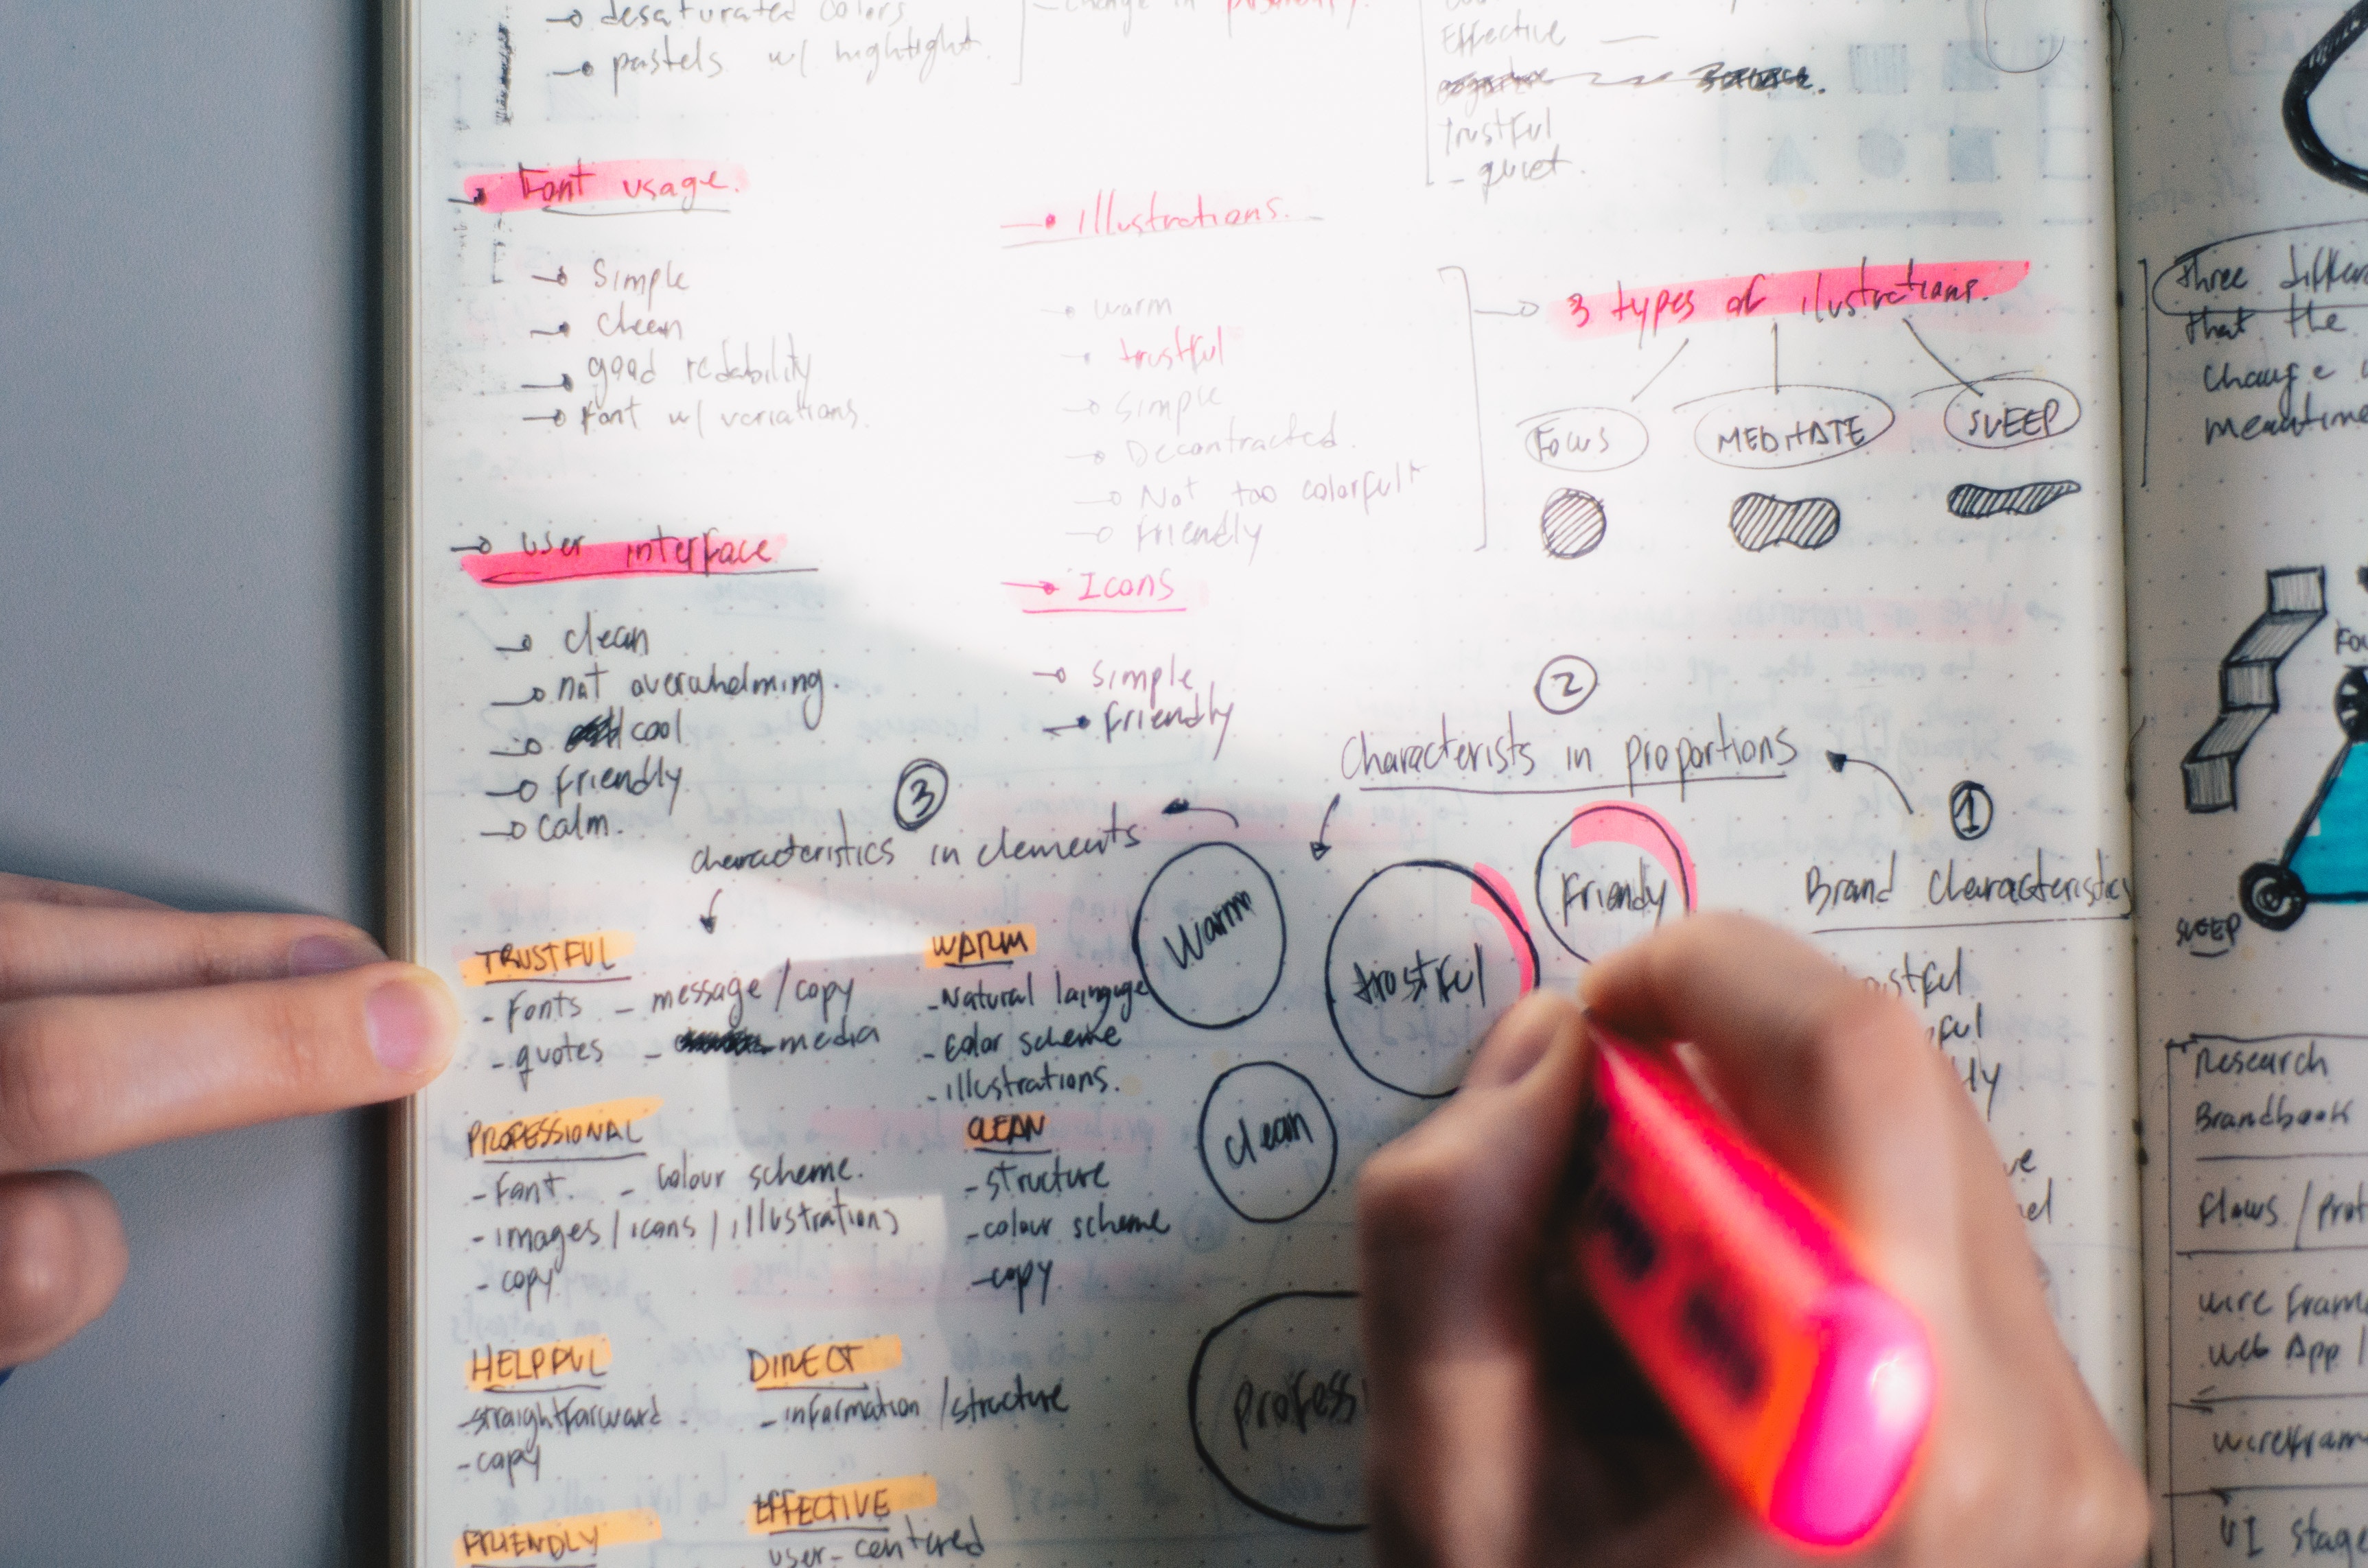 desaturated colors
pastels w/ hightight.
change in
Effective
trustful
- quiet.
Font usage.
Simple
clean
good redability
Font w/ variations.
illustrations.
warm
trustful
simple
Decontracted.
Not too colorful
friendly
3 types of ilustrations.
FOCUS
MEDITATE
SLEEP
User interface
clean
not overwhelming.
cool
friendly
calm.
Icons
simple
friendly
2
Characterists in proportions
1
Brand Characteristics
3
characteristics in elements
Warm
trustful
Friendly
clean
professi
TRUSTFUL
- Fonts - message/copy
- quotes - media
WARM
- Natural languge
- color scheme
- illustrations.
PROFESSIONAL
- Font. - colour scheme.
- images/icons/illustrations
- copy
CLEAN
- structure
- colour scheme
- copy
HELPFUL
- straightforward
- copy
DIRECT
- information/structure
FRIENDLY
EFFECTIVE
user-centered
three differ
that the
change
meantime
SLEEP
Research
Brandbook
Flows / Prot
wire frame
web App /
wirefram
UI stage